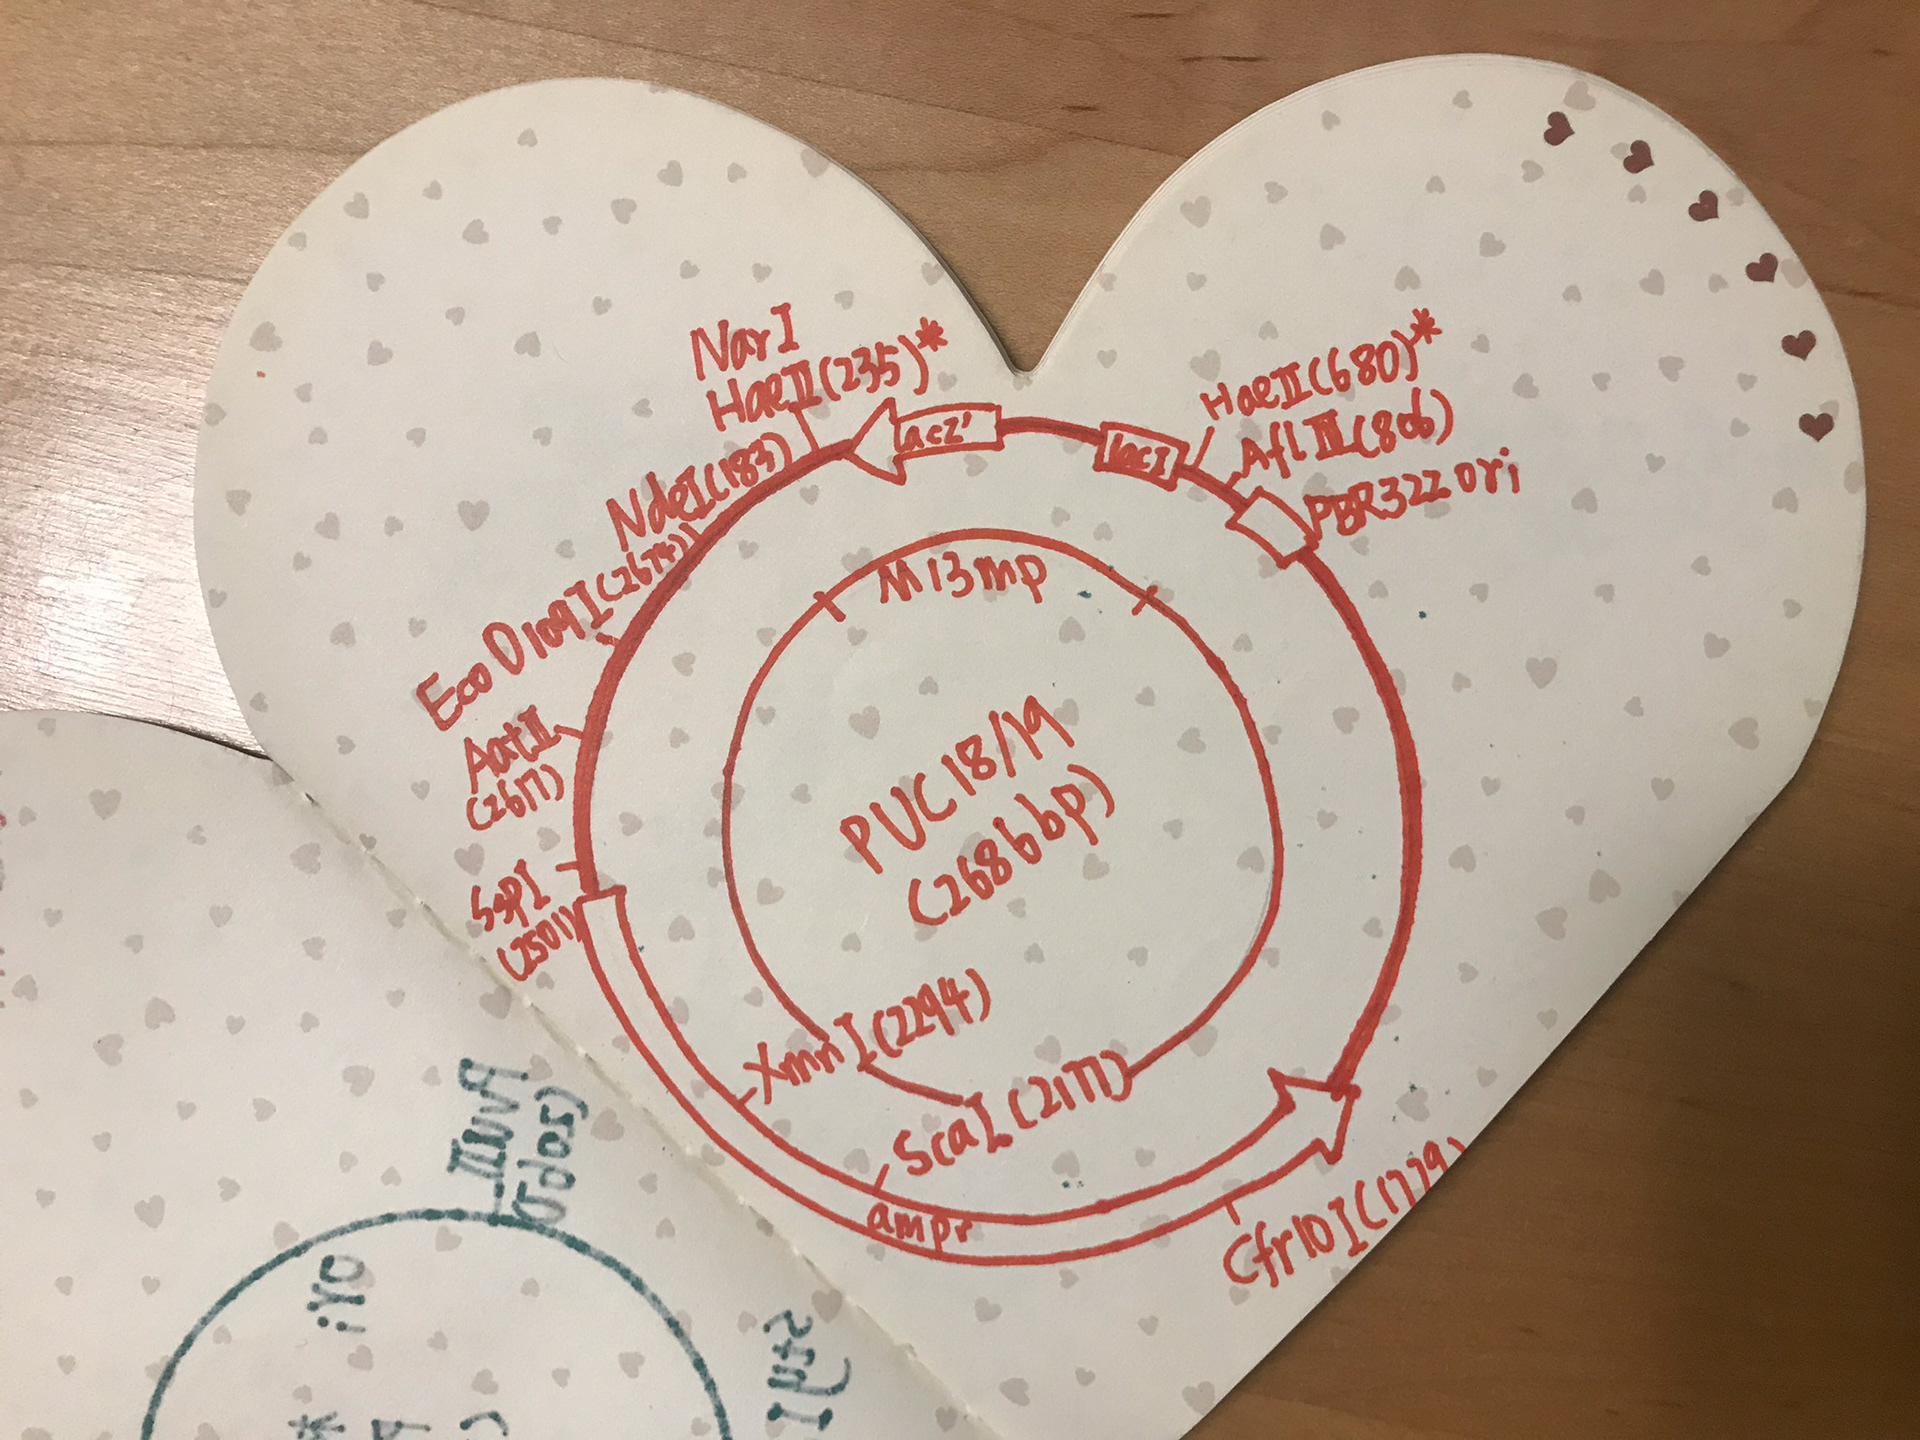 NarI
HaeII(235)*
lacZ'
lacI
HaeII(680)*
AflIII(806)
PBR322 ori
NdeI(183)
EcoO109I(2674)
AatII
(2617)
SspI
(2501)
M13mp
PUC18/19
(2686bp)
XmnI(2294)
ScaI(2177)
ampr
Cfr10I(1779)
PvuII
ori
StyI